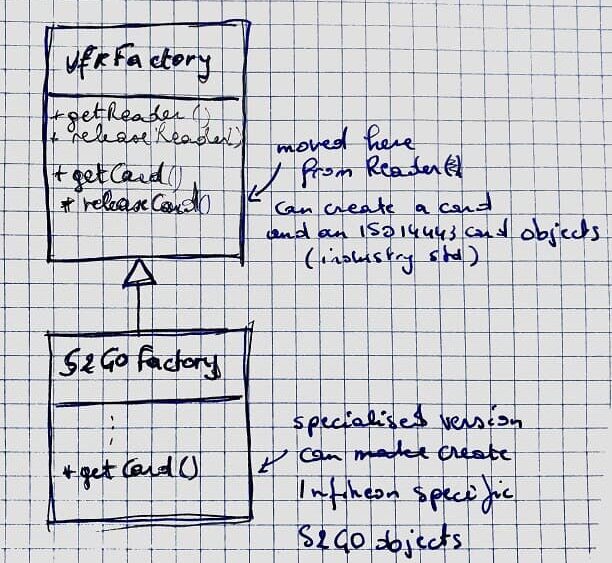 VfkFactory
+ getReader()
+ releaseReader()
+ getCard()
* releaseCard()
moved here
from Reader
can create a card
and an ISO14443 card objects
(industry std)
S2GO Factory
+ getCard()
specialised version
can make create
Infineon specific
S2GO objects